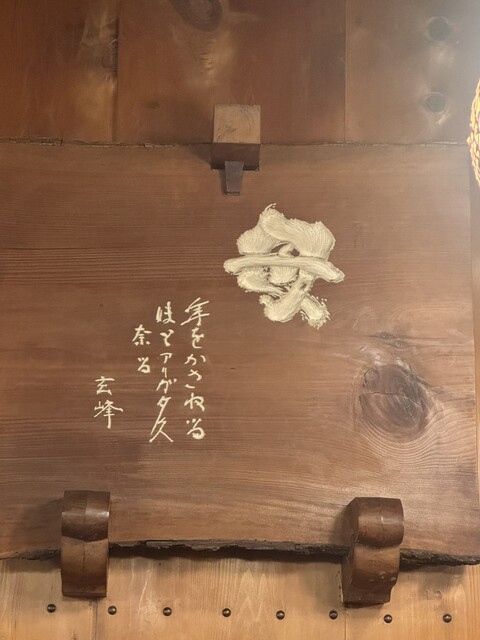 年をかさねる
ほどアリガタ久
奈る
玄峰